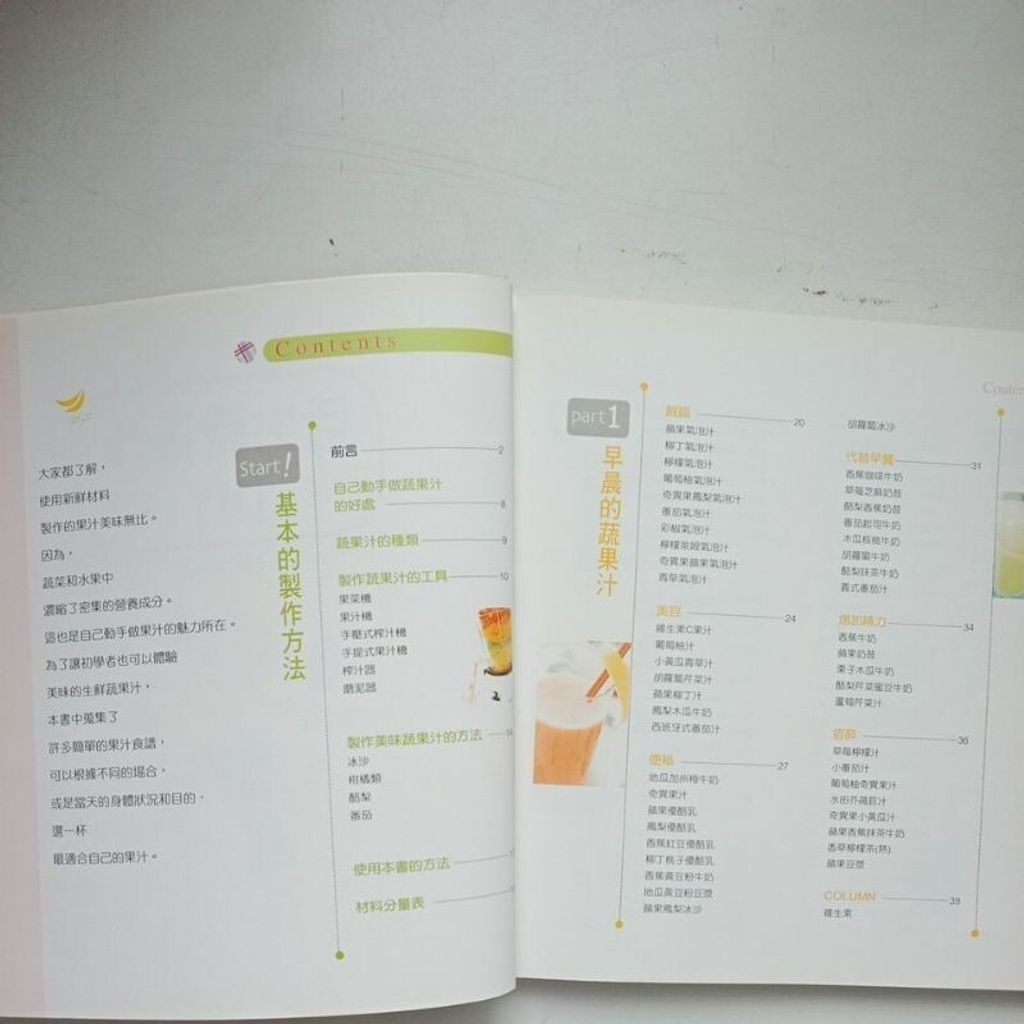 Contents
大家都了解，
使用新鮮材料
製作的果汁美味無比。
因為，
蔬菜和水果中
濃縮了密集的營養成分。
這也是自己動手做果汁的魅力所在。
為了讓初學者也可以體驗
美味的生鮮蔬果汁，
本書中蒐集了
許多簡單的果汁食譜，
可以根據不同的場合，
或是當天的身體狀況和目的，
選一杯
最適合自己的果汁。
Start!
基本的製作方法
前言 2
自己動手做蔬果汁
的好處 8
蔬果汁的種類 9
製作蔬果汁的工具 10
果菜機
果汁機
手壓式榨汁機
手提式果汁機
榨汁器
磨泥器
製作美味蔬果汁的方法 14
冰沙
柑橘類
酪梨
番茄
使用本書的方法
材料分量表
part1
早晨的蔬果汁
醒腦 20
蘋果氣泡汁
柳丁氣泡汁
檸檬氣泡汁
葡萄柚氣泡汁
奇異果鳳梨氣泡汁
番茄氣泡汁
彩椒氣泡汁
檸檬萊姆氣泡汁
奇異果蘋果氣泡汁
青草氣泡汁
美容 24
維生素C果汁
葡萄柚汁
小黃瓜青草汁
胡蘿蔔芹菜汁
蘋果柳丁汁
鳳梨木瓜牛奶
西班牙式番茄汁
便秘 27
地瓜加州梅牛奶
奇異果汁
蘋果優酪乳
鳳梨優酪乳
香蕉紅豆優酪乳
柳丁桃子優酪乳
香蕉黃豆粉牛奶
地瓜黃豆粉豆漿
蘋果鳳梨冰沙
胡蘿蔔冰沙
代替早餐 31
香蕉咖啡牛奶
草莓芝麻奶昔
酪梨香蕉奶昔
番茄起司牛奶
木瓜核桃牛奶
胡蘿蔔牛奶
酪梨抹茶牛奶
義式番茄汁
增加精力 34
香蕉牛奶
蘋果奶昔
栗子木瓜牛奶
酪梨芹菜蜜豆牛奶
蘆筍芹菜汁
宿醉 36
草莓檸檬汁
小番茄汁
葡萄柚奇異果汁
水田芥蘋果汁
奇異果小黃瓜汁
蘋果香蕉抹茶牛奶
香草檸檬茶(熱)
蘋果豆漿
COLUMN 39
維生素